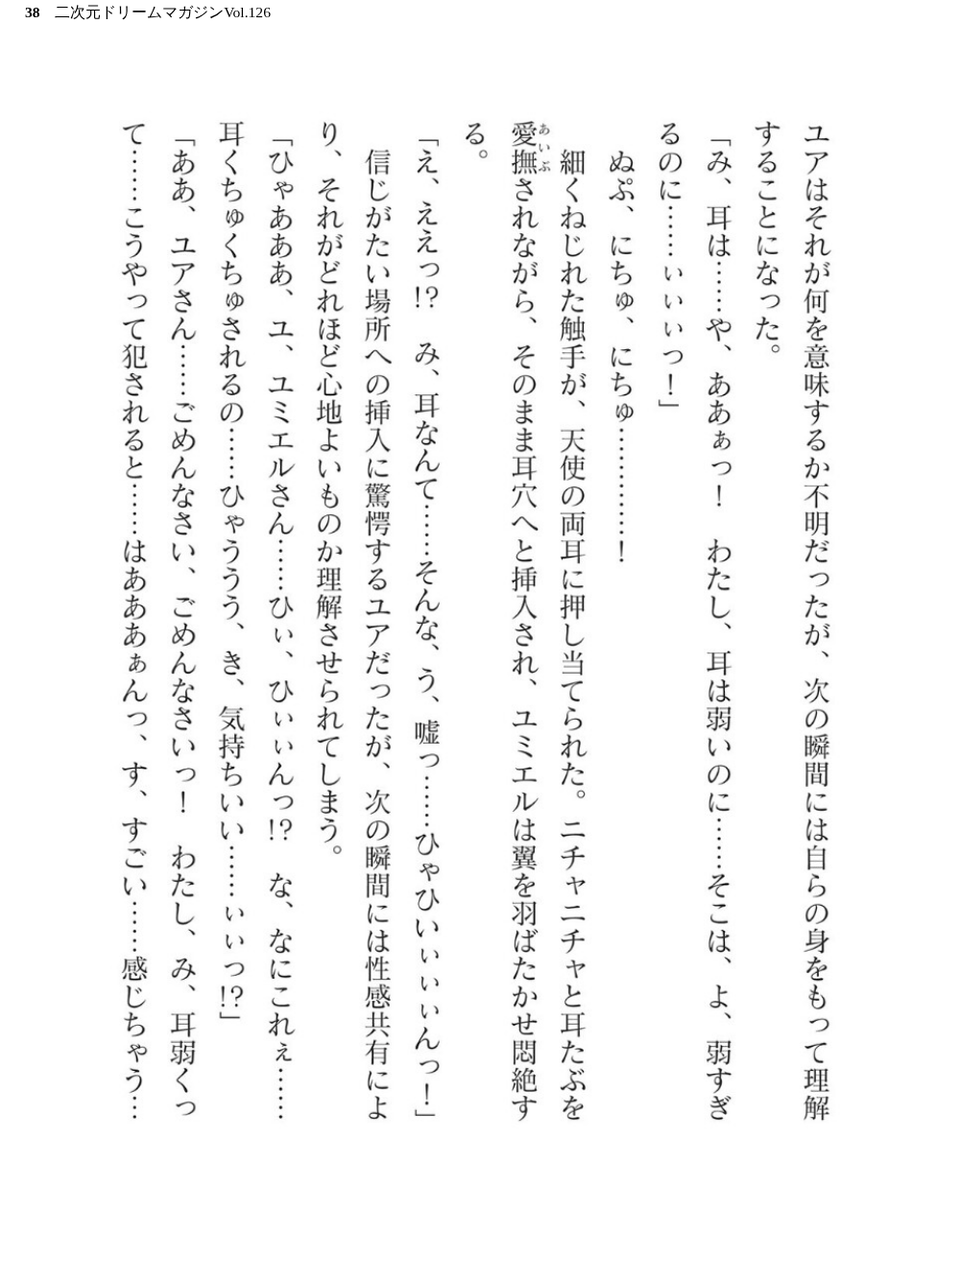 38 二次元ドリームマガジンVol.126
ユアはそれが何を意味するか不明だったが、次の瞬間には自らの身をもって理解
することになった。
「み、耳は……や、ああぁっ！　わたし、耳は弱いのに……そこは、よ、弱すぎ
るのに……ぃぃぃっ！」
　ぬぷ、にちゅ、にちゅ…………！
　細くねじれた触手が、天使の両耳に押し当てられた。ニチャニチャと耳たぶを
愛撫されながら、そのまま耳穴へと挿入され、ユミエルは翼を羽ばたかせ悶絶す
る。
「え、ええっ!?　み、耳なんて……そんな、う、嘘っ……ひゃひいぃぃぃんっ！」
　信じがたい場所への挿入に驚愕するユアだったが、次の瞬間には性感共有によ
り、それがどれほど心地よいものか理解させられてしまう。
「ひゃあああ、ユ、ユミエルさん……ひぃ、ひぃぃんっ!?　な、なにこれぇ……
耳くちゅくちゅされるの……ひゃううう、き、気持ちいい……ぃぃっ!?」
「ああ、ユアさん……ごめんなさい、ごめんなさいっ！　わたし、み、耳弱くっ
て……こうやって犯されると……はあああぁんっ、す、すごい……感じちゃう…